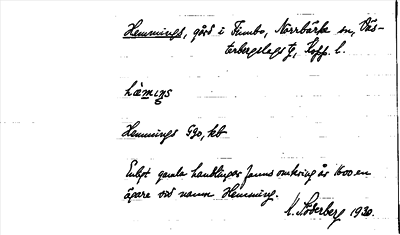 Hemmings, gård i Fimbo, Norrbärke sn, Väs-
terbergslags tg, Kopp. l.
Hemmings G30, kb
Enligt gamla handlingar fanns omkring år 1600 en
ägare vid namn Hemming.
K. Söderberg 1930.